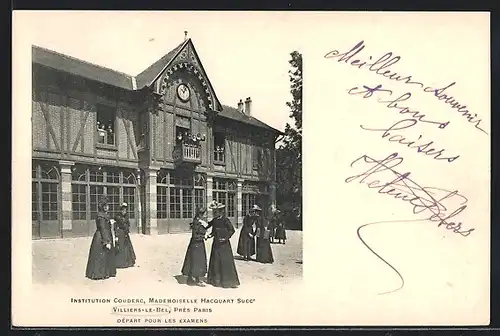 Meilleur souvenir
et bons
baisers
Helene Peters
INSTITUTION COUDERC, MADEMOISELLE HACQUART SUCCr
VILLIERS-LE-BEL, PRÈS PARIS
DÉPART POUR LES EXAMENS